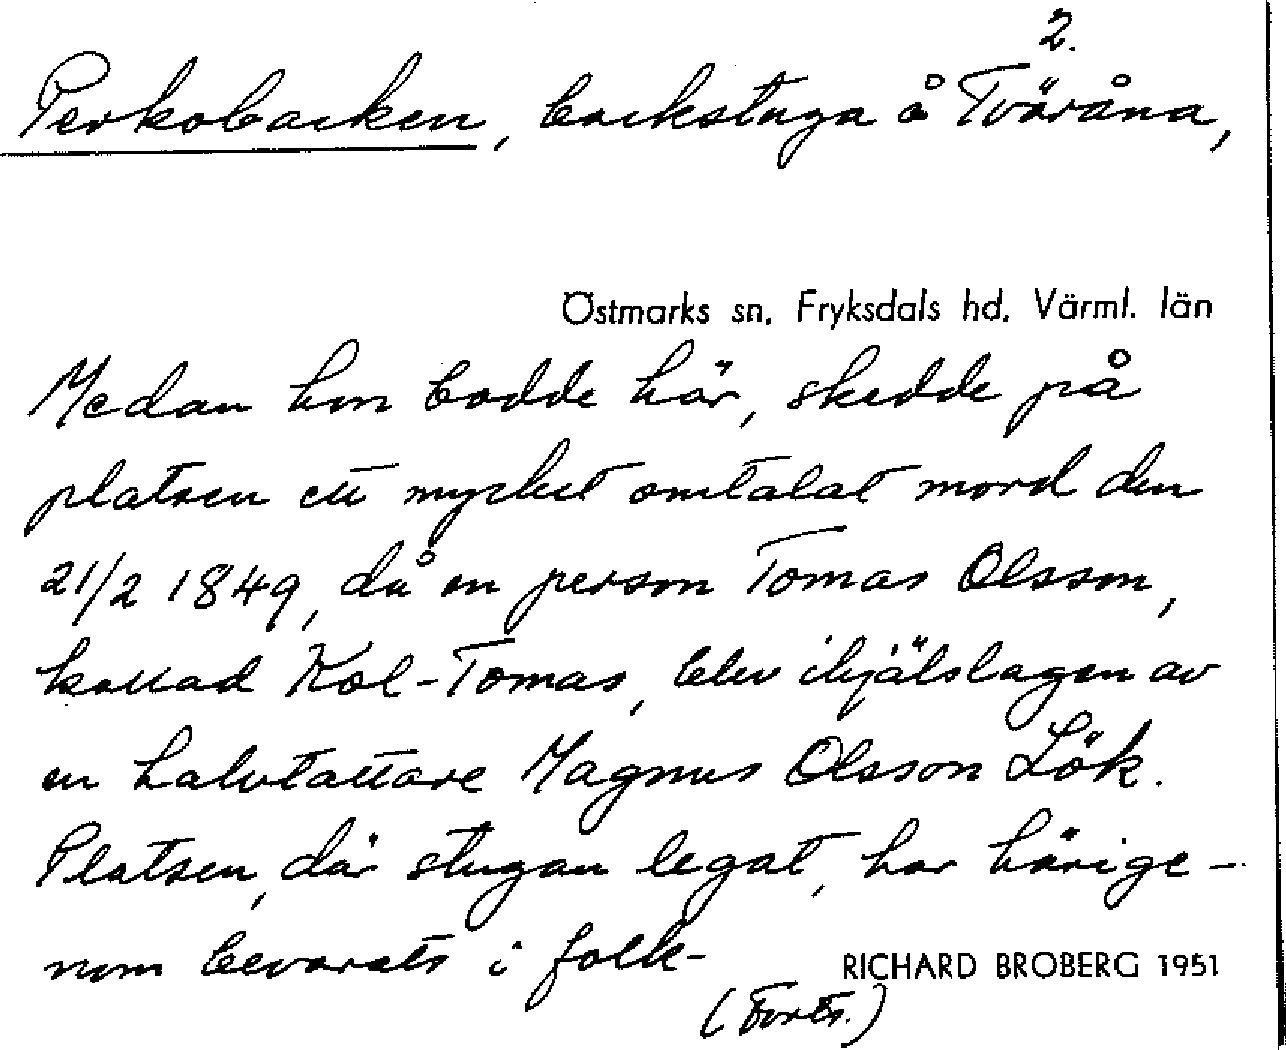 2.
Perkobacken, backstuga å Tväråna,
Östmarks sn. Fryksdals hd. Värml. län
Medan hon bodde här, skedde på
platsen ett mycket omtalat mord den
21/2 1849, då en person Tomas Olsson,
kallad Kol-Tomas, blev ihjälslagen av
en halvtattare Magnus Olsson Lök.
Platsen, där stugan legat, har härige-
nom bevarats i folk-
RICHARD BROBERG 1951
(Forts.)